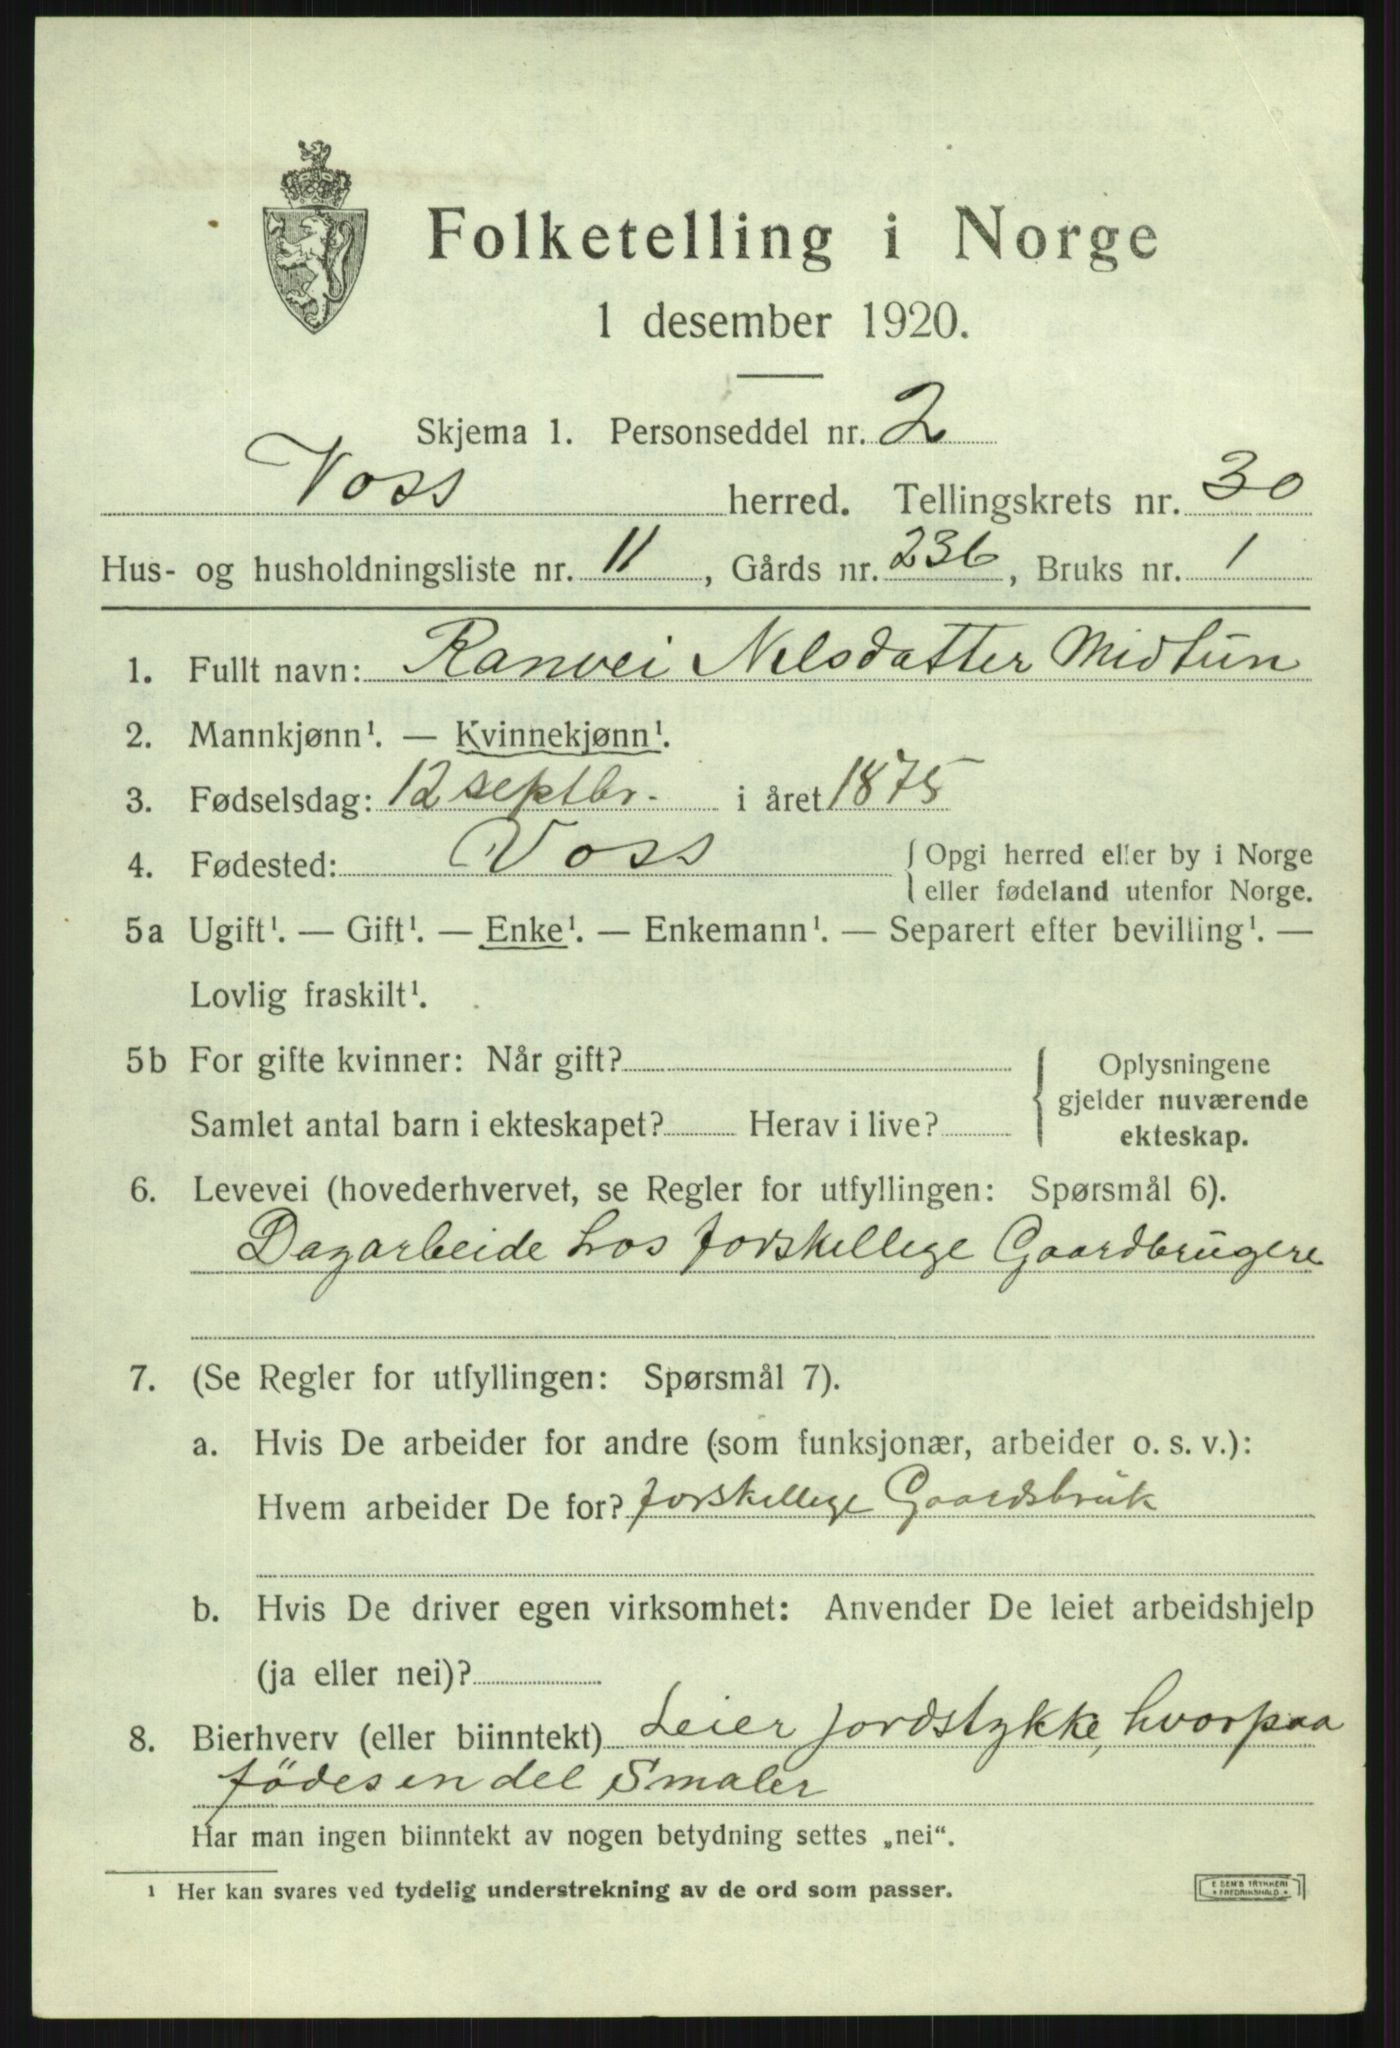 Folketelling i Norge
1 desember 1920.
Skjema 1. Personseddel nr. 2
Voss herred. Tellingskrets nr. 30
Hus- og husholdningsliste nr. 11, Gårds nr. 236, Bruks nr. 1
1. Fullt navn: Ranvei Nelsdatter Midtun
2. Mannkjønn¹. — Kvinnekjønn¹.
3. Fødselsdag: 12 septbr. i året 1875
4. Fødested: Voss { Opgi herred eller by i Norge
eller fødeland utenfor Norge.
5a Ugift¹. — Gift¹. — Enke¹. — Enkemann¹. — Separert efter bevilling¹. —
Lovlig fraskilt¹.
5b For gifte kvinner: Når gift? { Oplysningene
gjelder nuværende
Samlet antal barn i ekteskapet? Herav i live? ekteskap.
6. Levevei (hovederhvervet, se Regler for utfyllingen: Spørsmål 6).
Dagarbeide hos forskellige Gaardbrugere
7. (Se Regler for utfyllingen: Spørsmål 7).
a. Hvis De arbeider for andre (som funksjonær, arbeider o. s. v.):
Hvem arbeider De for? forskellige Gaardsbruk
b. Hvis De driver egen virksomhet: Anvender De leiet arbeidshjelp
(ja eller nei)?
8. Bierhverv (eller biinntekt) Leier jordstykke, hvorpaa
födes en del Smaler
Har man ingen biinntekt av nogen betydning settes „nei“.
¹ Her kan svares ved tydelig understrekning av de ord som passer.
E SEM'S TRYKKERI
FREDRIKSHALD